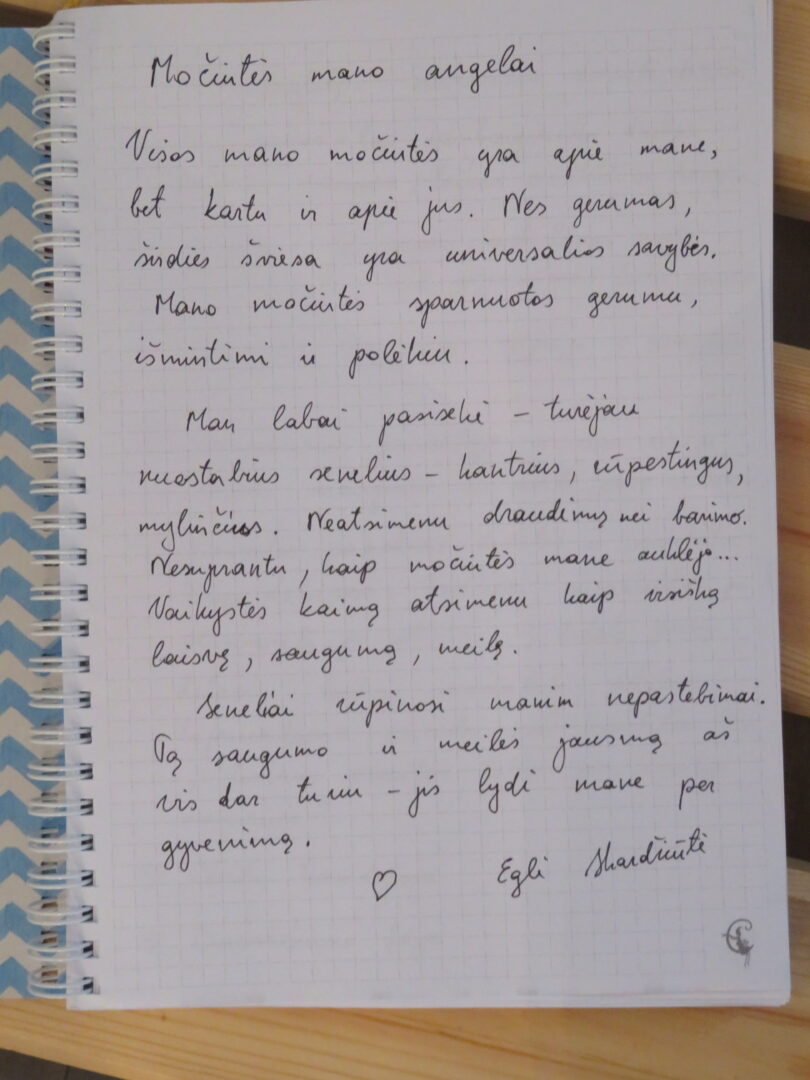 Močiutės mano angelai
Visos mano močiutės yra apie mane,
bet kartu ir apie jus. Nes gerumas,
širdies šviesa yra universalios savybės.
Mano močiutės sparnuotos gerumu,
išmintimi ir polėkiu.
Man labai pasisekė – turėjau
nuostabius senelius – kantrius, rūpestingus,
mylinčius. Neatsimenu draudimų nei barimo.
Nesuprantu, kaip močiutės mane auklėjo...
Vaikystės kaimą atsimenu kaip visišką
laisvę, saugumą, meilę.
Seneliai rūpinosi manim nepastebimai.
Tą saugumo ir meilės jausmą aš
vis dar turiu – jis lydi mane per
gyvenimą.
Eglė Skardžiūtė